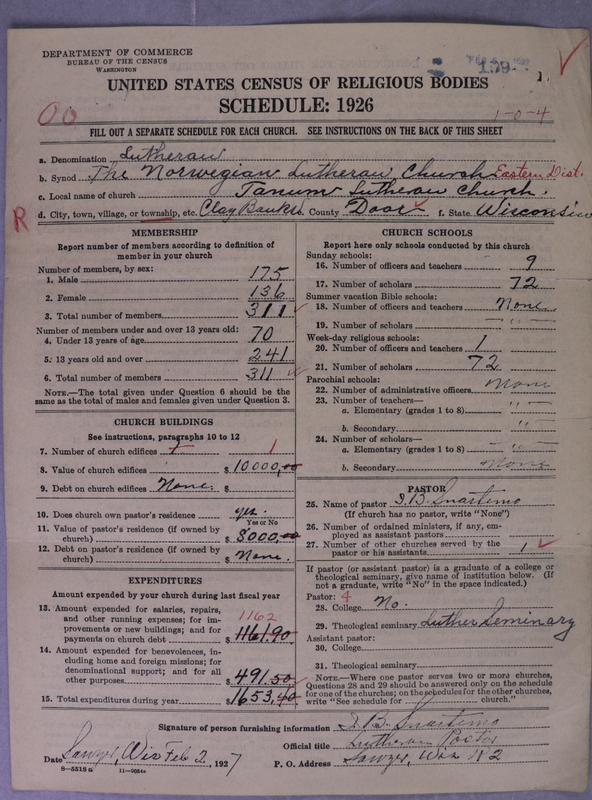 DEPARTMENT OF COMMERCE
BUREAU OF THE CENSUS
WASHINGTON
159
1.
UNITED STATES CENSUS OF RELIGIOUS BODIES
SCHEDULE: 1926
1-0-4
FILL OUT A SEPARATE SCHEDULE FOR EACH CHURCH. SEE INSTRUCTIONS ON THE BACK OF THIS SHEET
a. Denomination Lutheran
b. Synod The Norwegian Lutheran Church Eastern Dist.
c. Local name of church Tanum Lutheran Church.
R d. City, town, village, or township, etc. Clay Banks County Door f. State Wisconsin
MEMBERSHIP
Report number of members according to definition of
member in your church
Number of members, by sex:
1. Male 175
2. Female 136
3. Total number of members 311
Number of members under and over 13 years old:
4. Under 13 years of age 70
5. 13 years old and over 241
6. Total number of members 311
NOTE.—The total given under Question 6 should be the
same as the total of males and females given under Question 3.
CHURCH BUILDINGS
See instructions, paragraphs 10 to 12
7. Number of church edifices 1
8. Value of church edifices $10000,00
9. Debt on church edifices None. $
10. Does church own pastor's residence? yes.
Yes or No
11. Value of pastor's residence (if owned by
church) $8000,00
12. Debt on pastor's residence (if owned by
church) $None.
EXPENDITURES
Amount expended by your church during last fiscal year
13. Amount expended for salaries, repairs,
and other running expenses; for im-
provements or new buildings; and for
payments on church debt 1162 $1161.90
14. Amount expended for benevolences, in-
cluding home and foreign missions; for
denominational support; and for all
other purposes $491.50
15. Total expenditures during year $1653,40
CHURCH SCHOOLS
Report here only schools conducted by this church
Sunday schools:
16. Number of officers and teachers 9
17. Number of scholars 72
Summer vacation Bible schools:
18. Number of officers and teachers None
19. Number of scholars " "
Week-day religious schools:
20. Number of officers and teachers 1
21. Number of scholars 72
Parochial schools:
22. Number of administrative officers None
23. Number of teachers—
a. Elementary (grades 1 to 8) " "
b. Secondary " "
24. Number of scholars—
a. Elementary (grades 1 to 8) " "
b. Secondary None
PASTOR
25. Name of pastor
(If church has no pastor, write "None")
26. Number of ordained ministers, if any, em-
ployed as assistant pastors
27. Number of other churches served by the
pastor or his assistants 1
If pastor (or assistant pastor) is a graduate of a college or
theological seminary, give name of institution below. (If
not a graduate, write "No" in the space indicated.)
Pastor: 4
28. College No.
29. Theological seminary Luther Seminary
Assistant pastor:
30. College
31. Theological seminary
NOTE.—Where one pastor serves two or more churches,
Questions 28 and 29 should be answered only on the schedule
for one of the churches; on the schedules for the other churches,
write "See schedule for church."
Signature of person furnishing information
Official title Lutheran Pastor
Date Sawyer, Wis Feb 2, 1927 P. O. Address Sawyer, Wis R 2
8-5518 a